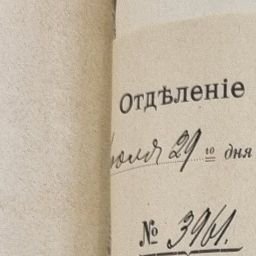 Отдѣленіе
юля 29 го дня
№ 3961.